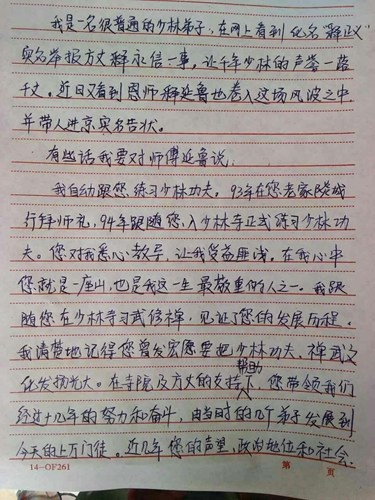 我是一名很普通的少林弟子，在网上看到化名"释正义"
实名举报方丈释永信一事，让千年少林的声誉一落
千丈。近日又看到恩师释延鲁也卷入这场风波之中，
并带人进京实名告状。
有些话我要对师傅延鲁说：
我自幼跟您练习少林功夫，93年在您老家
行拜师礼，94年跟随您入少林寺正式练习少林功
夫。您对我悉心教导，让我受益匪浅。在我心中
您就是一座山，也是我这一生最敬重的人之一。我跟
随您在少林寺习武修禅，见证了您的发展历程。
我清带地记得您曾发宏愿要把少林功夫、禅武文
化发扬光大。在寺院及方丈的支持帮助下，您带领我们
经过十几年的努力和奋斗，由当时的几个弟子发展到
今天的上万门徒。近几年您的声望，政治地位和社会
14-OF261 第 页